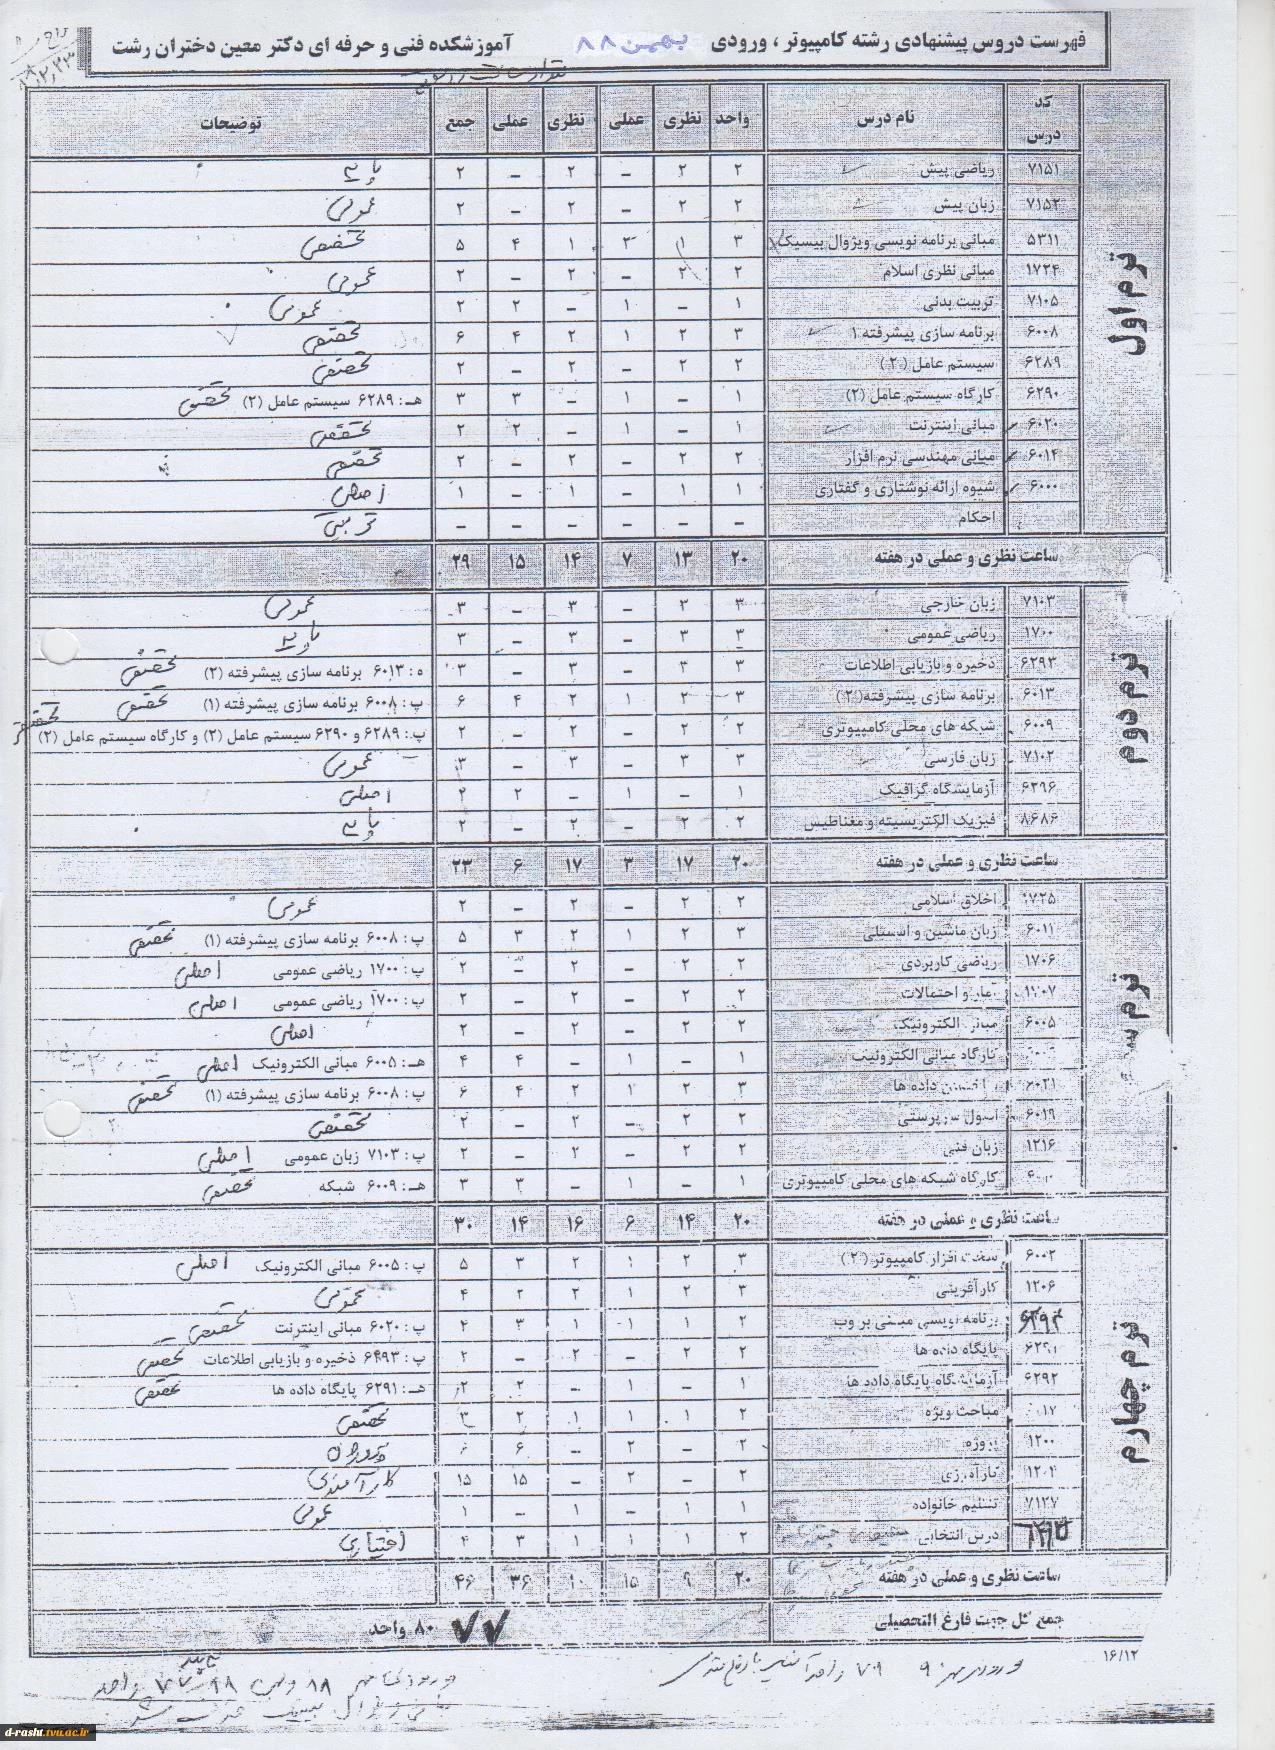 فهرست دروس پیشنهادی رشته کامپیوتر ، ورودی بهمن ۸۸ آموزشکده فنی و حرفه ای دکتر معین دختران رشت
کد درس نام درس واحد نظری عملی نظری عملی جمع توضیحات
ترم اول
۷۱۵۱ ریاضی پیش ۲ ۲ – ۲ – ۲ پایه
۷۱۵۲ زبان پیش ۲ ۲ – ۲ – ۲ عمومی
۵۳۱۱ مبانی برنامه نویسی ویژوال بیسیک ۳ ۱ ۲ ۱ ۴ ۵ تخصصی
۱۷۲۴ مبانی نظری اسلام ۲ ۲ – ۲ – ۲ عمومی
۷۱۰۵ تربیت بدنی ۱ – ۱ – ۲ ۲ عمومی
۶۰۰۸ برنامه سازی پیشرفته ۱ ۳ ۲ ۱ ۲ ۴ ۶ تخصصی
۶۲۸۹ سیستم عامل (۲) ۲ ۲ – ۲ – ۲ تخصصی
۶۲۹۰ کارگاه سیستم عامل (۲) ۱ – ۱ – ۳ ۳ هـ: ۶۲۸۹ سیستم عامل (۲) تخصصی
۶۰۲۰ مبانی اینترنت ۱ – ۱ – ۲ ۲ تخصصی
۶۰۱۴ مبانی مهندسی نرم افزار ۲ ۲ – ۲ – ۲ تخصصی
۶۰۰۰ شیوه ارائه نوشتاری و گفتاری ۱ ۱ – ۱ – ۱ اصلی
احکام – – – – – – تربیتی
ساعت نظری و عملی در هفته ۲۰ ۱۳ ۷ ۱۴ ۱۵ ۲۹
ترم دوم
۷۱۰۳ زبان خارجی ۳ ۳ – ۳ – ۳ عمومی
۱۷۰۰ ریاضی عمومی ۳ ۳ – ۳ – ۳ پایه
۶۲۹۳ ذخیره و بازیابی اطلاعات ۳ ۳ – ۳ – ۳ ه: ۶۰۱۳ برنامه سازی پیشرفته (۲) تخصصی
۶۰۱۳ برنامه سازی پیشرفته(۲) ۳ ۲ ۱ ۲ ۴ ۶ پ: ۶۰۰۸ برنامه سازی پیشرفته (۱) تخصصی
۶۰۰۹ شبکه های محلی کامپیوتری ۲ ۲ – ۲ – ۲ پ: ۶۲۸۹ و ۶۲۹۰ سیستم عامل (۲) و کارگاه سیستم عامل (۲) تخصصی
۷۱۰۲ زبان فارسی ۳ ۳ – ۳ – ۳ عمومی
۶۲۹۶ آزمایشگاه گرافیک ۱ – ۱ – ۲ ۲ اصلی
۸۶۸۶ فیزیک الکتریسیته و مغناطیس ۲ ۲ – ۲ – ۲ پایه
ساعت نظری و عملی در هفته ۲۰ ۱۷ ۳ ۱۷ ۶ ۲۳
ترم سوم
۱۷۲۵ اخلاق اسلامی ۲ ۲ – ۲ – ۲ عمومی
۶۰۱۱ زبان ماشین و اسمبلی ۳ ۲ ۱ ۲ ۳ ۵ پ: ۶۰۰۸ برنامه سازی پیشرفته (۱) تخصصی
۱۷۰۶ ریاضی کاربردی ۲ ۲ – ۲ – ۲ پ: ۱۷۰۰ ریاضی عمومی اصلی
۱۷۰۷ آمار و احتمالات ۲ ۲ – ۲ – ۲ پ: ۱۷۰۰ ریاضی عمومی اصلی
۶۰۰۵ مبانی الکترونیک ۲ ۲ – ۲ – ۲ اصلی
کارگاه مبانی الکترونیک ۱ – ۱ – ۴ ۴ هـ: ۶۰۰۵ مبانی الکترونیک اصلی
۶۰۲۱ داده ها ۳ ۲ ۱ ۲ ۴ ۶ پ: ۶۰۰۸ برنامه سازی پیشرفته (۱) تخصصی
۶۰۱۹ اصول سرپرستی ۲ ۲ – ۲ – ۲ تخصصی
۱۲۱۶ زبان فنی ۲ ۲ – ۲ – ۲ پ: ۷۱۰۳ زبان عمومی اصلی
کارگاه شبکه های محلی کامپیوتری ۱ – ۱ – ۳ ۳ هـ: ۶۰۰۹ شبکه تخصصی
ساعت نظری و عملی در هفته ۲۰ ۱۴ ۶ ۱۶ ۱۴ ۳۰
ترم چهارم
۶۰۰۲ سخت افزار کامپیوتر (۲) ۳ ۲ ۱ ۲ ۳ ۵ پ: ۶۰۰۵ مبانی الکترونیک اصلی
۱۲۰۶ کارآفرینی ۳ ۲ ۱ ۲ ۲ ۴ عمومی
۶۲۹۴ برنامه نویسی مبتنی بر وب ۲ ۱ ۱ ۱ ۳ ۴ پ: ۶۰۲۰ مبانی اینترنت تخصصی
۶۲۹۱ پایگاه داده ها ۲ ۲ – ۲ – ۲ پ: ۶۲۹۳ ذخیره و بازیابی اطلاعات تخصصی
۶۲۹۲ آزمایشگاه پایگاه داده ها ۱ – ۱ – ۲ ۲ هـ: ۶۲۹۱ پایگاه داده ها تخصصی
مباحث ویژه ۲ ۱ ۱ ۱ ۲ ۳ تخصصی
۱۲۰۰ پروژه ۲ – ۲ – ۶ ۶
کارآموزی ۲ – ۲ – ۱۵ ۱۵ کارآموزی
۷۱۲۷ تنظیم خانواده ۱ ۱ – ۱ – ۱ عمومی
درس انتخابی ۲ ۱ ۱ ۱ ۳ ۴ اختیاری
ساعت نظری و عملی در هفته ۲۰ ۹ ۱۵ ۱۰ ۳۶ ۴۶
جمع کل جهت فارغ التحصیلی ۷۷ ۸۰ واحد
۱۶/۱۲
d-rasht.tvu.ac.ir